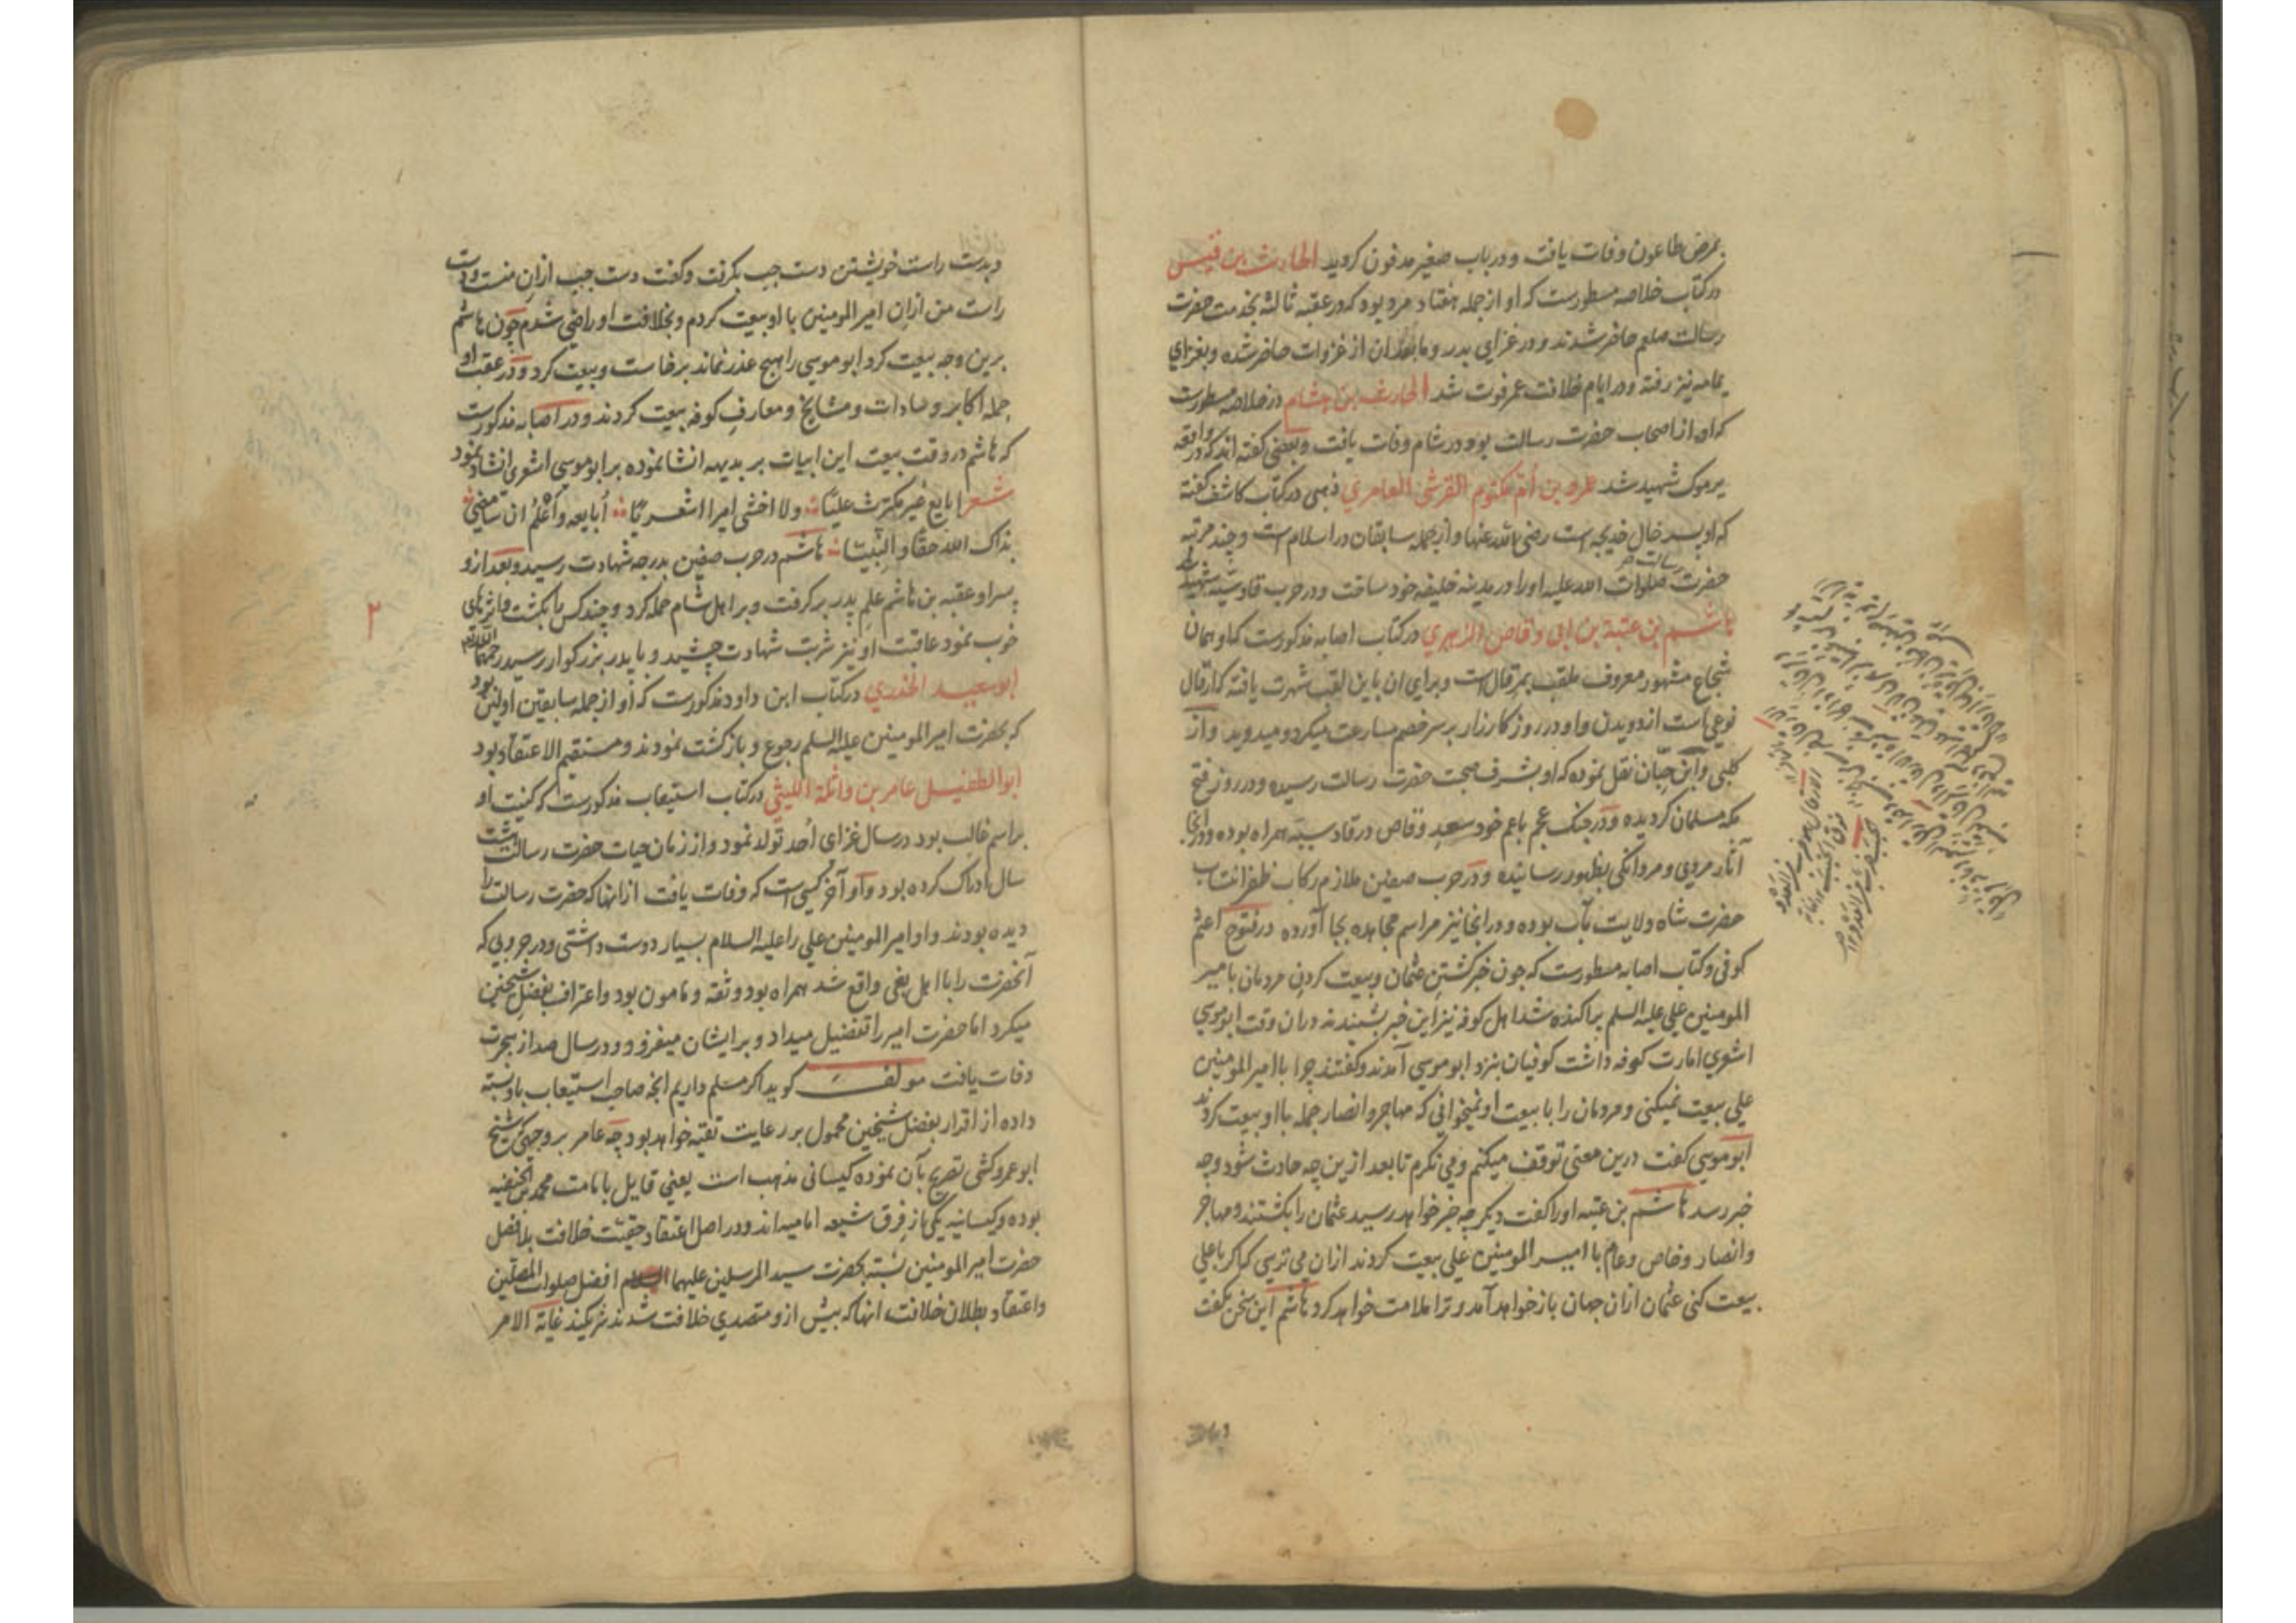 بمرض طاعون وفات یافت و در باب صغیر مدفون گردید الحارث بن قیس
در کتاب خلاصه مسطورست که او از جمله هفتاد مرد بود که در عقبه ثالثه بخدمت حضرت
رسالت صلعم حاضر شدند و در غزای بدر و مابعد ان از غزوات حاضر شده و بغزای
یمامه نیز رفته و در ایام خلافت عمر فوت شد الحارث بن هشام در خلاصه مسطورست
که او از اصحاب حضرت رسالت بود و در شام وفات یافت و بعضی گفته اند که در واقعه
یرموک شهید شد عمرو بن ام مکتوم القرشی العامری ذهبی در کتاب کاشف گفته
که او پسر خال خدیجه است رضی الله عنها و از جمله سابقان در اسلام است و چند مرتبه
حضرت رسالت صلوات الله علیه او را در مدینه خلیفه خود ساخت و در حرب قادسیه شهید شد
هاشم بن عتبة بن ابی وقاص الزهری در کتاب اصابه مذکورست که او همان
شجاع مشهور معروف ملقب بمرقال است و برای ان باین لقب شهرت یافته که ارقال
نوعی است از دویدن و او در روز کارزار بر سر خصم مسارعت میکرد و میدوید و از
کلبی و ابن حبان نقل نموده که او بشرف صحبت حضرت رسالت رسیده و در روز فتح
مکه مسلمان گردیده و در جنک عجم با عم خود سعد وقاص در قادسیه همراه بوده و در انجا
آثار مردی و مردانکی بظهور رسانیده و در حرب صفین ملازم رکاب ظفر انتساب
حضرت شاه ولایت مآب بوده و در انجا نیز مراسم مجاهده بجا آورده در فتوح اعثم
کوفی و کتاب اصابه مسطورست که چون خبر کشتن عثمان و بیعت کردن مردمان با میر
المومنین علی علیه السلم پراکنده شد اهل کوفه نیز این خبر بشنیدند و در ان وقت ابو موسی
اشعری امارت کوفه داشت کوفیان بنزد ابو موسی آمدند و گفتند چرا با امیر المومنین
علی بیعت نمیکنی و مردمان را با بیعت او نمیخوانی که مهاجر و انصار جمله با او بیعت کردند
ابو موسی کفت درین معنی توقف میکنم و می نکرم تا بعد ازین چه حادث شود و چه
خبر رسد هاشم بن عتبه او را کفت دیکر چه خبر خواهد رسید عثمان را بکشتند و مهاجر
و انصار و خاص و عام با امیر المومنین علی بیعت کردند ازان می ترسی که اکر با علی
بیعت کنی عثمان ازان جهان باز خواهد آمد و ترا ملامت خواهد کرد هاشم این سخن بکفت
و بدست
و بدست راست خویشتن دست چپ بکرفت و کفت دست چپ ازان منست و دست
راست من ازان امیر المومنین با او بیعت کردم و بخلافت او راضی شدم چون هاشم
برین وجه بیعت کرد ابو موسی را هیچ عذر نماند برخاست و بیعت کرد و در عقب او
جمله اکابر و سادات و مشایخ و معارف کوفه بیعت کردند و در اصابه مذکورست
که هاشم در وقت بیعت این ابیات بر بدیهه انشا نموده بر ابو موسی اشعری انشاد نمود
شعر ابایع غیر مکترث علیا ولا اخشی امیرا اشعریا أبایعه وأعلم ان سأرضی
بذاک الله حقا والنبیا هاشم در حرب صفین بدرجه شهادت رسید و بعد ازو
پسر او عقبه بن هاشم علم پدر بر کرفت و بر اهل شام حمله کرد و چند کس را بکشت و اثرهای
خوب نمود عاقبت او نیز شربت شهادت چشید و با پدر بزرکوار رسید رحمهما الله
ابو سعید الخدری در کتاب ابن داود مذکورست که او از جمله سابقین اولین بود
که بحضرت امیر المومنین علیه السلم رجوع و بازکشت نمودند و مستقیم الاعتقاد بود
ابو الطفیل عامر بن واثلة اللیثی در کتاب استیعاب مذکورست که کنیت او
بر اسم غالب بود در سال غزای أحد تولد نمود و از زمان حیات حضرت رسالت هشت
سال ادراک کرده بود و او آخر کسی است که وفات یافت از انها که حضرت رسالت را
دیده بودند و او امیر المومنین علی را علیه السلام بسیار دوست داشتی و در حروبی که
آنحضرت را با اهل بغی واقع شد همراه بود و ثقه و مامون بود و اعتراف بفضل شیخین
میکرد اما حضرت امیر را تفضیل میداد و بر ایشان میفزود و در سال صد از هجرت
وفات یافت مولف کوید اکر مسلم داریم انچه صاحب استیعاب باو نسبته
داده از اقرار بفضل شیخین محمول بر رعایت تقیه خواهد بود چه عامر بر وجهی که شیخ
ابو عمرو کشی تصریح بآن نموده کیسانی مذهب است یعنی قایل بامامت محمد بن الحنفیه
بوده و کیسانیه یکی از فرق شیعه امامیه اند و در اصل اعتقاد حقیت خلافت بلا فصل
حضرت امیر المومنین نسبته بحضرت سید المرسلین علیهما السلام افضل صلوات المصلین
و اعتقاد بطلان خلافت انها که پیش ازو متصدی خلافت شدند شریکند غایة الامر
۲